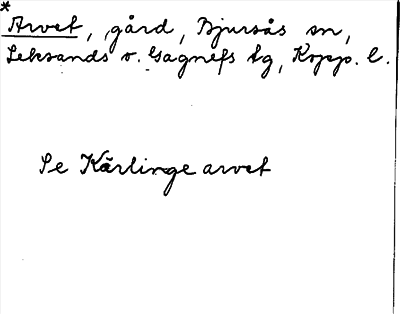 * Arvet, gård, Bjursås sn,
Leksands o. Gagnefs tg, Kopp. l.
Se Kärlinge arvet